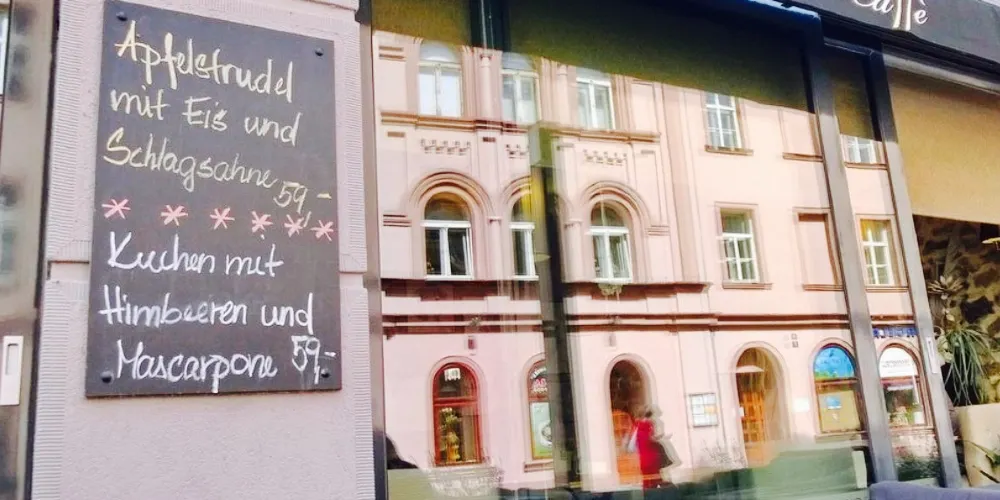 Apfelstrudel
mit Eis und
Schlagsahne 59,-
******
Kuchen mit
Himbeeren und
Mascarpone 59,-
Caffè